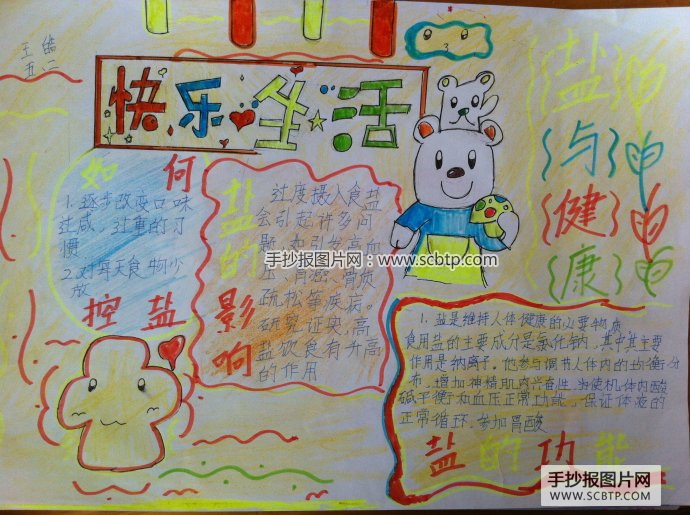 王
五二
快乐生活
盐
与
健
康
如何
1.逐步改变口味
过咸,过重的习
惯
2.对每天食物少
放
控盐
盐的影响
过度摄入食盐
会引起许多问
题,如引发高血
压、胃癌、骨质
疏松等疾病。
研究证实,高
盐饮食有升高
的作用
手抄报图片网:www.scbtp.com
1.盐是维持人体健康的必要物质
食用盐的主要成分是氯化钠,其中其主要
作用是纳离子。他参与调节人体内的均衡分
布,增加神精肌肉兴奋性,维使机体内酸
碱平衡和血压正常功能,保证体液的
正常循环.参加胃酸
盐的功能
手抄报图片网
WWW.SCBTP.COM